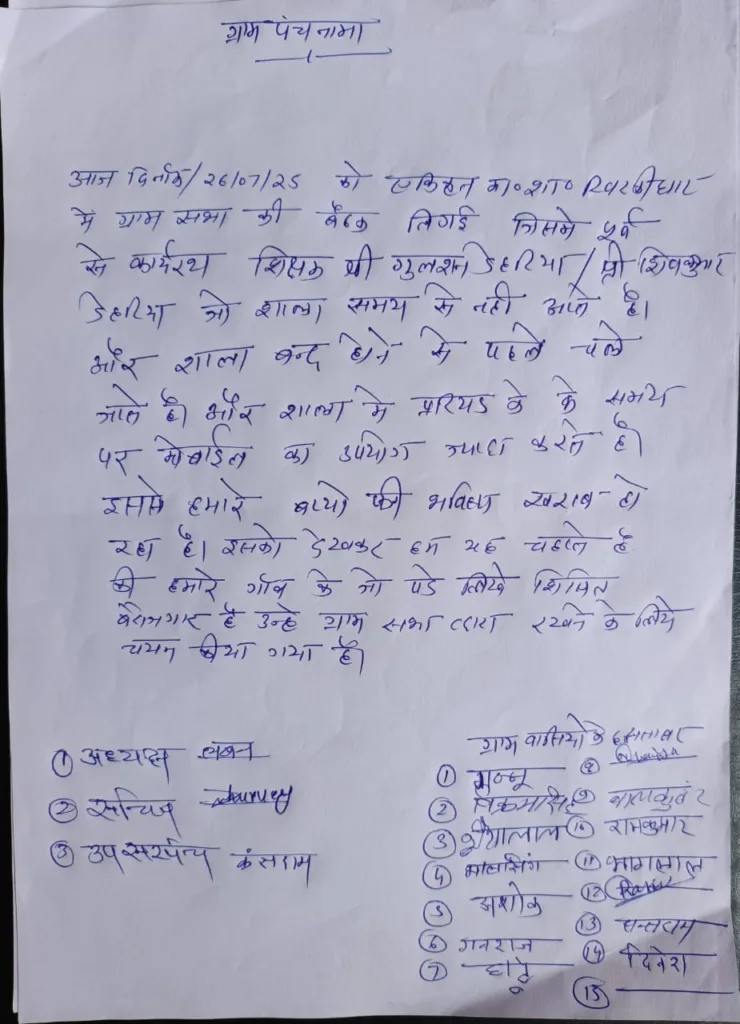 ग्राम पंचनामा
आज दिनांक/26/07/25 को एकिकृत मा०शा०
मे ग्राम सभा की बैठक लिगई जिसमे पूर्व
से कार्यरथ शिक्षक श्री गुलशन डेहरिया / श्री शिवकुमार
डेहरिया जो शाला समय से नही आते है।
और शाला बन्द होने से पहले चले
जाते है। और शाला मे प्ररियड के के समय
पर मोबाईल का उपयोग ज्यादा करते है।
इससे हमारे बच्चो की भविष्य खराब हो
रहा है। इसको देखकर हम यह चहाते है
की हमारे गॉव के जो पडे लिखे शिक्षित
बेरोजगार है उन्हे ग्राम सभा द्वारा रखने के लिये
चयन कीया गया है।
① अध्यक्ष
② सचिव
③ उपसरपंच कंसराम
ग्राम वासियो के हस्ताक्षर
① गुड्डू
② विक्रमसिंह
③ भैयालाल
④ मालसिंग
⑤ अशोक
⑥ गनराज
⑦
⑧
⑨ बालकुवंर
⑩ रामकुमार
⑪ भागलाल
⑫
⑬ धनराम
⑭ दिनेश
⑮